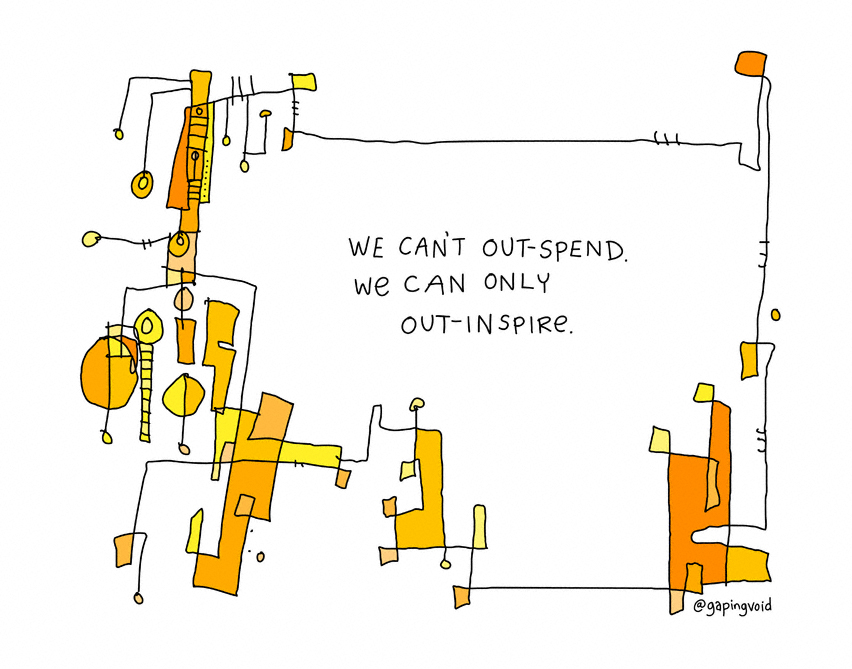 WE CAN'T OUT-SPEND.
We CAN ONLY
OUT-INSPIRe.
@gapingvoid